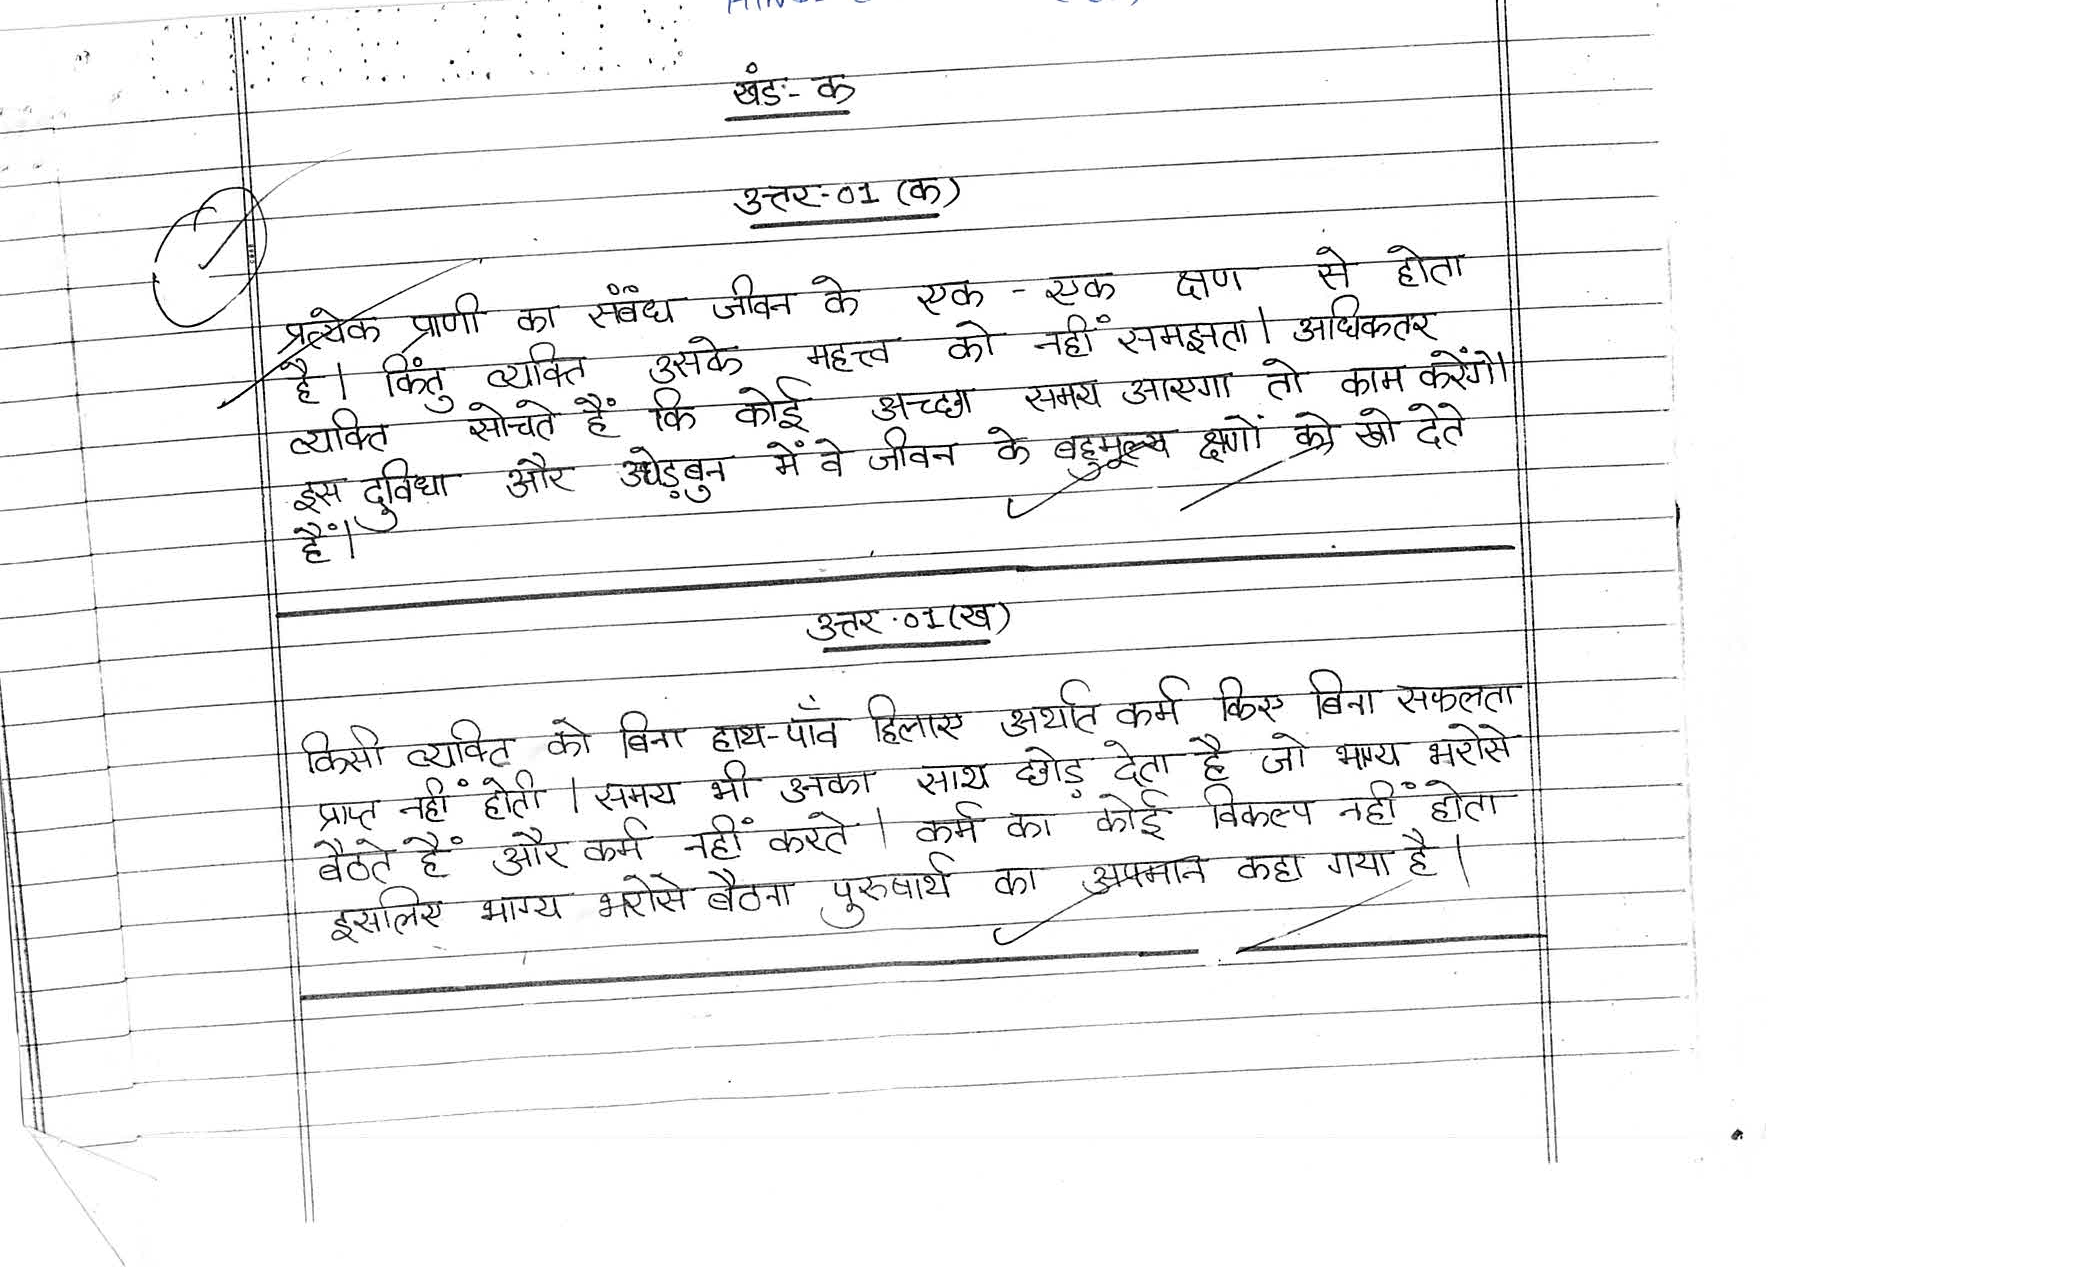 खंड:- क
उत्तर:-01 (क)
प्रत्येक प्राणी का संबंध जीवन के एक - एक क्षण से होता
है। किंतु व्यक्ति उसके महत्त्व को नहीं समझता। अधिकतर
व्यक्ति सोचते हैं कि कोई अच्छा समय आएगा तो काम करेंगे।
इस दुविधा और उधेड़बुन में वे जीवन के बहुमूल्य क्षणों को खो देते
हैं।
उत्तर.01(ख)
किसी व्यक्ति को बिना हाथ-पाँव हिलाए अर्थात कर्म किए बिना सफलता
प्राप्त नहीं होती। समय भी उनका साथ छोड़ देता है जो भाग्य भरोसे
बैठते हैं और कर्म नहीं करते। कर्म का कोई विकल्प नहीं होता
इसलिए भाग्य भरोसे बैठना पुरुषार्थ का अपमान कहा गया है।